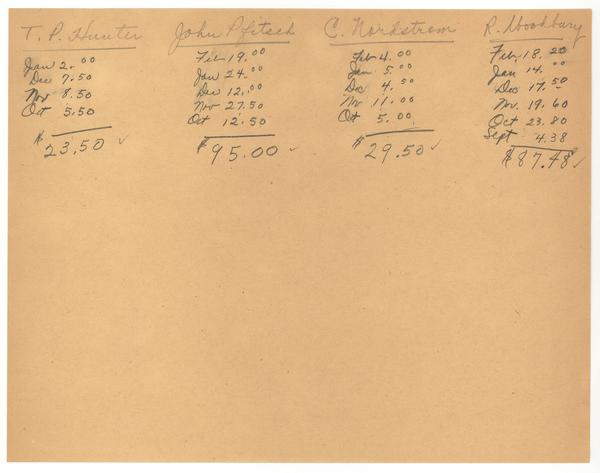 T. P. Hunter
Jan 2.00
Dec 7.50
Nov 8.50
Oct 5.50
$23.50 ✓
John Pfitsch
Feb 19.00
Jan 24.00
Dec 12.00
Nov 27.50
Oct 12.50
$95.00 ✓
C. Nordstrom
Feb 4.00
Jan 5.00
Dec 4.50
Nov 11.00
Oct 5.00
$29.50 ✓
R. Woodbury
Feb. 18.20
Jan 14.00
Dec 17.50
Nov. 19.60
Oct 23.80
Sept 4.38
$87.48 ✓